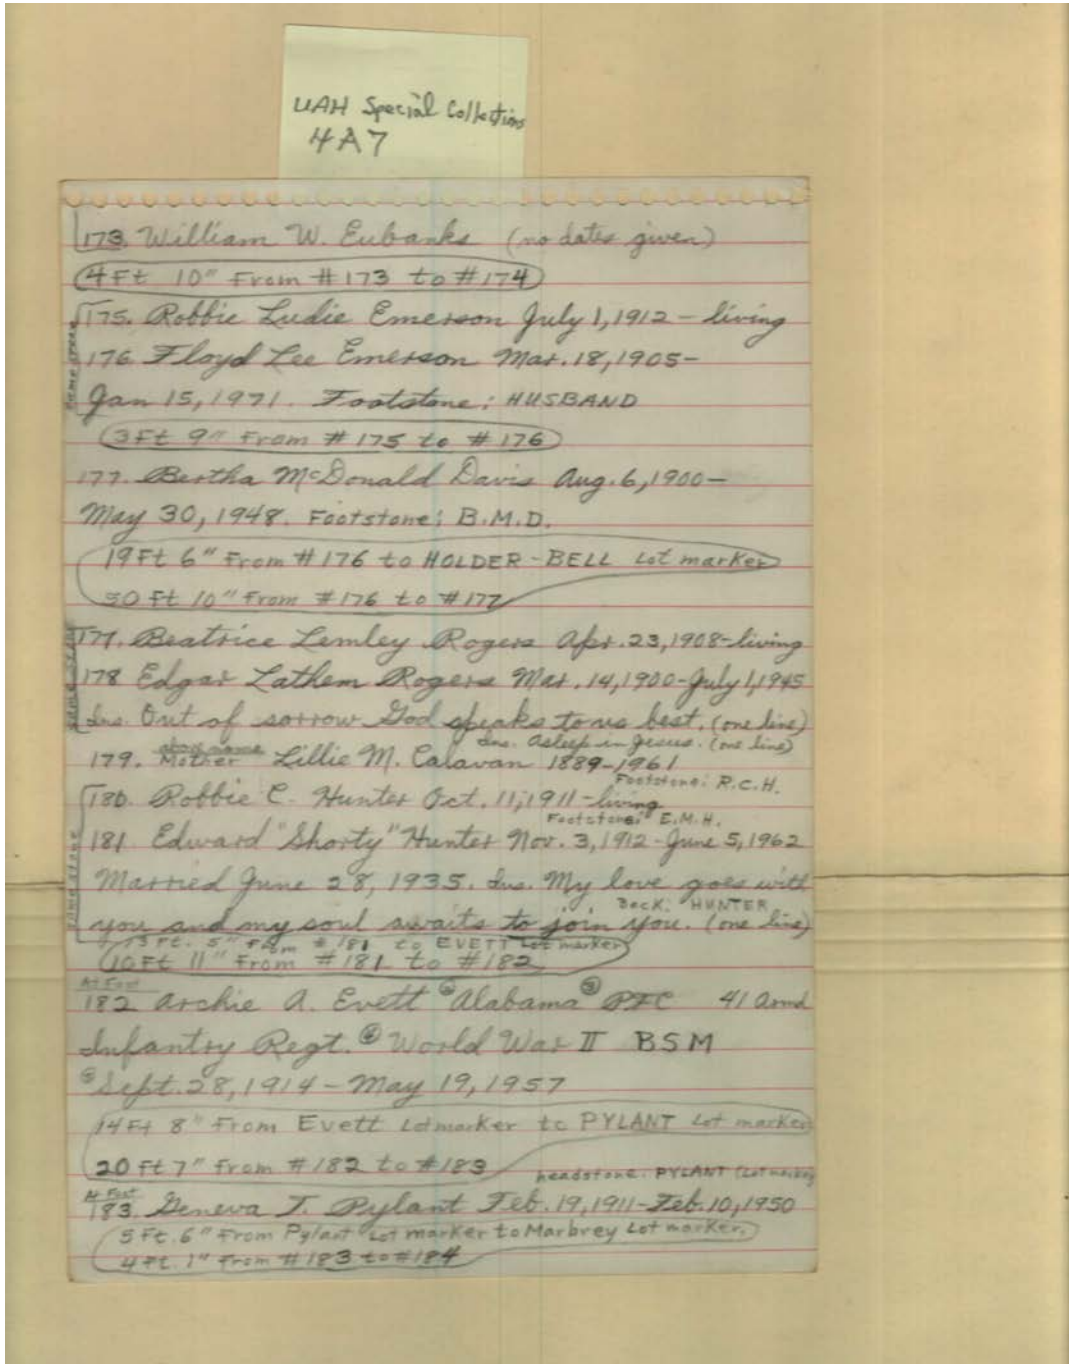 UAH Special Collections
4A7
173. William W. Eubanks (no dates given)
4 Ft 10" From #173 to #174
175. Robbie Ludie Emerson July 1, 1912 - living
same stone
176 Floyd Lee Emerson Mar. 18, 1905-
Jan 15, 1971. Footstone: HUSBAND
3 Ft 9" From #175 to #176
177. Bertha McDonald Davis Aug. 6, 1900-
May 30, 1948. Footstone: B.M.D.
19 Ft 6" From #176 to HOLDER-BELL Lot marker
30 Ft 10" From #176 to #177
same stone
177. Beatrice Lemley Rogers Apr. 23, 1908-living
178 Edgar Lathem Rogers Mar. 14, 1900-July 1, 1945
Ins. Out of sorrow God speaks to us best. (one line)
above name Ins. Asleep in Jesus. (one line)
179. Mother Lillie M. Calavan 1889-1961
Footstone: R.C.H.
180. Robbie C. Hunter Oct. 11, 1911-living
Footstone: E.M.H.
181 Edward "Shorty" Hunter Nov. 3, 1912-June 5, 1962
same stone
Married June 28, 1935. Ins. My love goes with
Back: HUNTER
you and my soul awaits to join you. (one line)
13 Ft. 5" From #181 to EVETT Lot marker
10 Ft 11" From #181 to #182
At Foot
182 Archie A. Evett ② Alabama ③ PFC 41 Armd
Infantry Regt. ④ World War II BSM
⑤ Sept. 28, 1914 - May 19, 1957
14 Ft 8" From Evett Lot marker to PYLANT Lot marker
20 Ft 7" From #182 to #183
headstone: PYLANT (Lot marker)
At Foot
183. Geneva T. Pylant Feb. 19, 1911-Feb. 10, 1950
5 Ft. 6" From Pylant Lot marker to Marbrey Lot marker.
4 Ft. 1" From #183 to #184